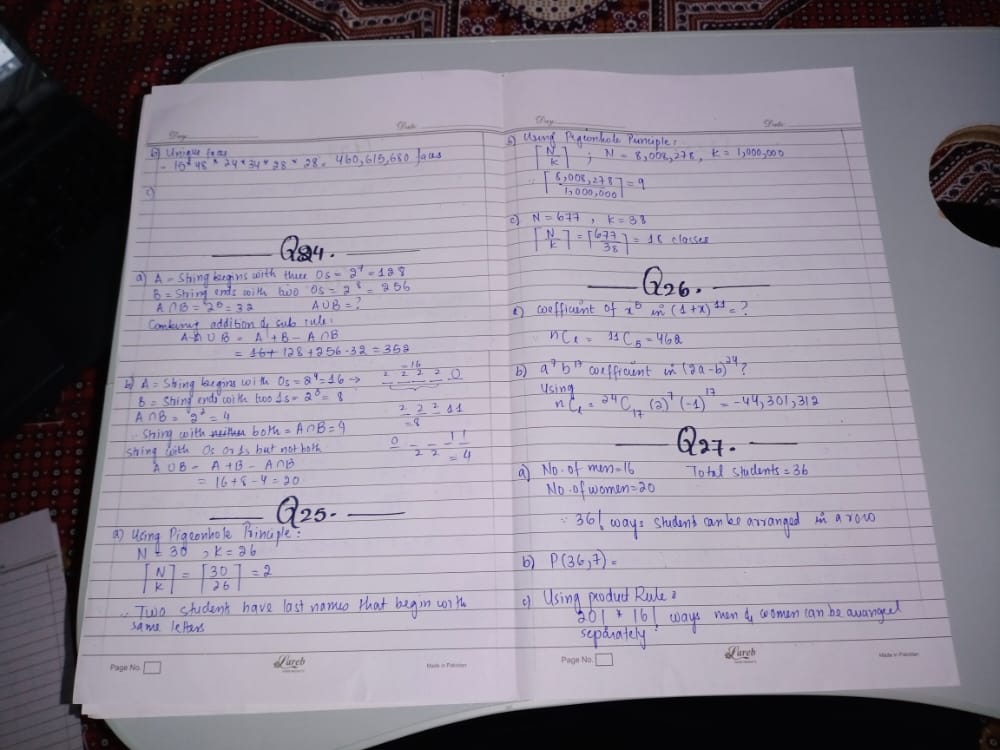 Day
Date
b) Unique faces
= 15 * 48 * 24 * 34 * 28 * 28 = 460,615,680 faces
c)
Q24.
a) A = String begins with three 0s = 2⁷ = 128
B = String ends with two 0s = 2⁸ = 256
A∩B = 2⁵ = 32 A∪B = ?
Combining addition & sub rule:
A∪B = A + B - A∩B
= 128 + 256 - 32 = 352
b) A = String begins with 0s = 2⁴ = 16 →
= 16
2 2 2 2 0
B = String ends with two 1s = 2³ = 8
2 2 2 1 1
= 8
A∩B = 2² = 4
∴ String with both = A∩B = 4
0 _ _ 1 1
2 2
= 4
String with 0s or 1s but not both
A∪B = A + B - A∩B
= 16 + 8 - 4 = 20
Q25.
a) Using Pigeonhole Principle:
N = 30 , K = 26
⌈N/K⌉ = ⌈30/26⌉ = 2
∴ Two student have last names that begin with
same letters
Page No.
Lareb
Made in Pakistan
Day
Date
b) Using Pigeonhole Principle:
⌈N/K⌉ ; N = 8,008,278, K = 1,000,000
∴ ⌈8,008,278/1,000,000⌉ = 9
c) N = 677 , K = 38
⌈N/K⌉ = ⌈677/38⌉ = 18 classes
Q26.
a) coefficient of x⁵ in (1+x)¹¹ = ?
nCr = ¹¹C₅ = 462
b) a⁷b¹⁷ coefficient in (2a-b)²⁴?
Using
nCr = ²⁴C₁₇ (2)⁷ (-1)¹⁷ = -44,301,312
Q27.
a) No. of men = 16 Total students = 36
No. of women = 20
∴ 36! ways student can be arranged in a row
b) P(36,7) =
c) Using product Rule:
20! * 16! ways men & women can be arranged
separately
Page No.
Lareb
Made in Pakistan